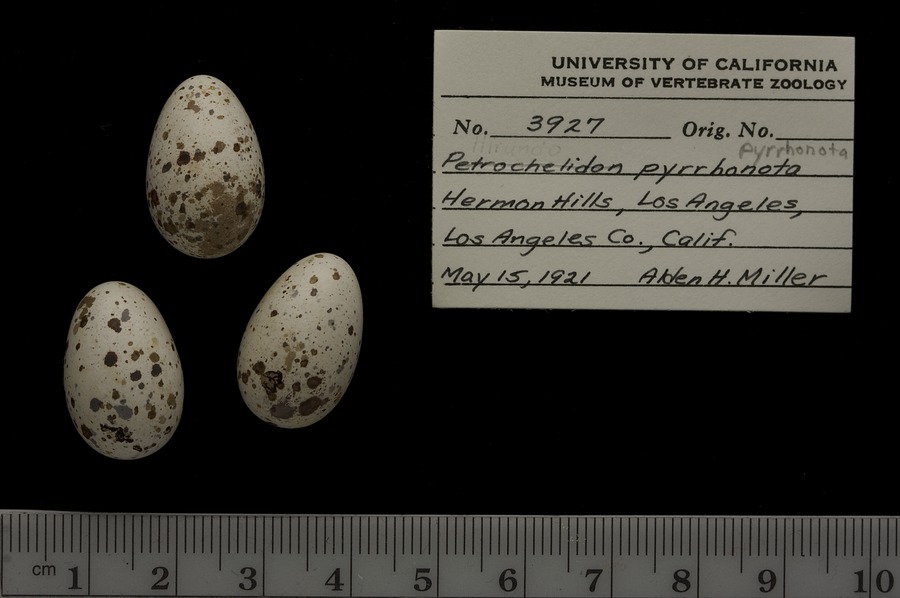 UNIVERSITY OF CALIFORNIA
MUSEUM OF VERTEBRATE ZOOLOGY
No. 3927 Orig. No.
pyrrhonota
Petrochelidon pyrrhonota
Hermon Hills, Los Angeles,
Los Angeles Co., Calif.
May 15, 1921 Alden H. Miller
cm 1 2 3 4 5 6 7 8 9 10